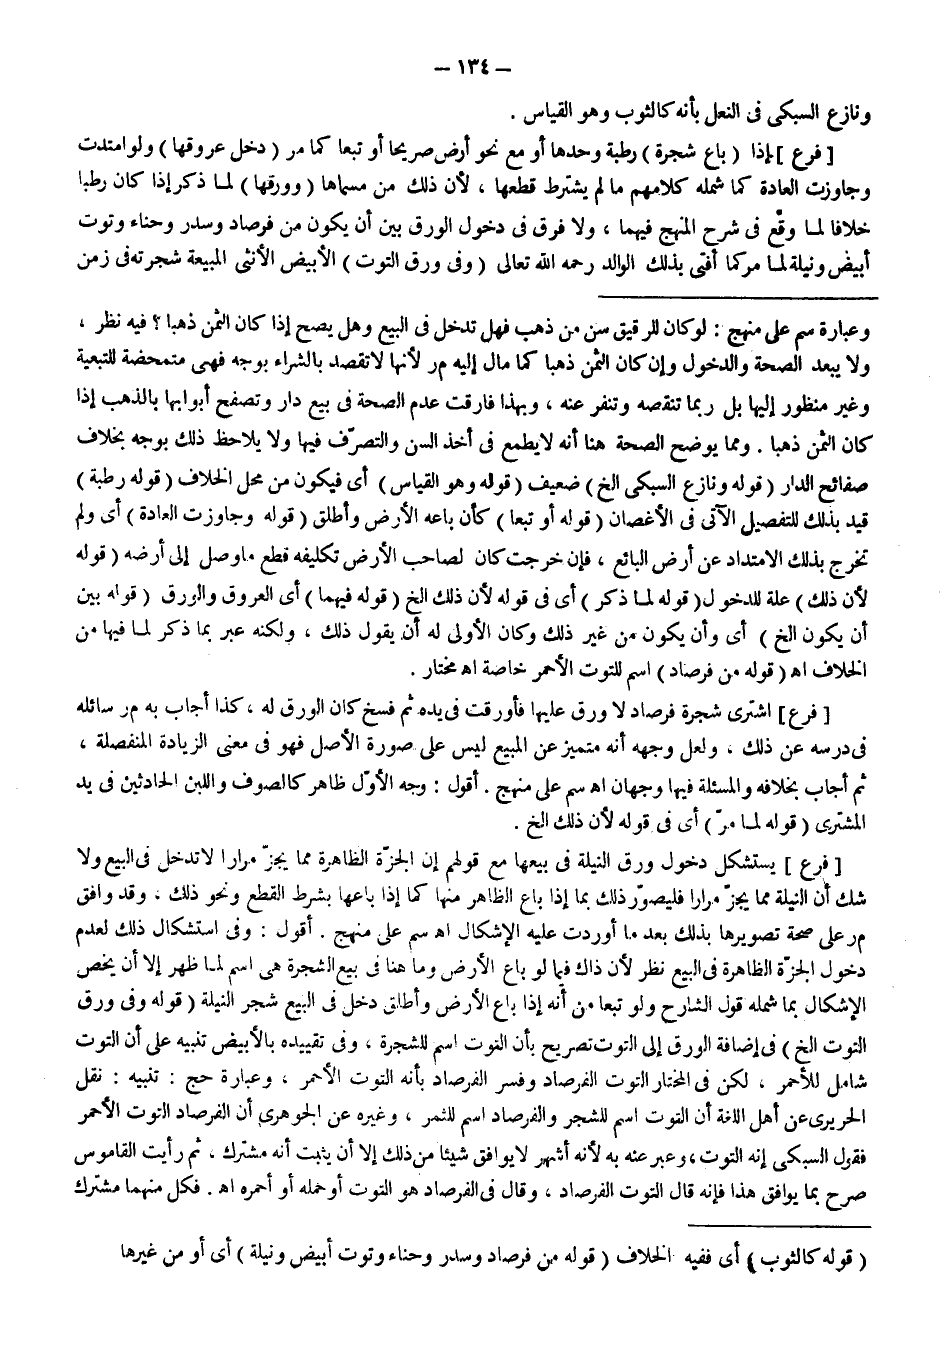 – ١٣٤ –
ونازع السبكى فى النعل بأنه كالثوب وهو القياس .
[ فرع ] إذا ( باع شجرة ) رطبة وحدها أو مع نحو أرض صريحا أو تبعا كما مر ( دخل عروقها ) ولو امتدت
وجاوزت العادة كما شمله كلامهم ما لم يشترط قطعها ، لأن ذلك من مسماها ( وورقها ) لما ذكر إذا كان رطبا
خلافا لما وقع فى شرح المنهج فيهما ، ولا فرق فى دخول الورق بين أن يكون من فرصاد وسدر وحناء وتوت
أبيض ونيلة لما مر كما أفتى بذلك الوالد رحمه الله تعالى ( وفى ورق التوت ) الأبيض الأنثى المبيعة شجرته فى زمن
وعبارة سم على منهج : لو كان للرقيق سن من ذهب فهل تدخل فى البيع وهل يصح إذا كان الثمن ذهبا ؟ فيه نظر ،
ولا يبعد الصحة والدخول وإن كان الثمن ذهبا كما مال إليه مر لأنها لاتقصد بالشراء بوجه فهى متمحضة للتبعية
وغير منظور إليها بل ربما تنقصه وتنفر عنه ، وبهذا فارقت عدم الصحة فى بيع دار وتصفح أبوابها بالذهب إذا
كان الثمن ذهبا . ومما يوضح الصحة هنا أنه لايطمع فى أخذ السن والتصرّف فيها ولا يلاحظ ذلك بوجه بخلاف
صفائح الدار ( قوله ونازع السبكى الخ ) ضعيف ( قوله وهو القياس ) أى فيكون من محل الخلاف ( قوله رطبة )
قيد بذلك للتفصيل الآتى فى الأغصان ( قوله أو تبعا ) كأن باعه الأرض وأطلق ( قوله وجاوزت العادة ) أى ولم
تخرج بذلك الامتداد عن أرض البائع ، فإن خرجت كان لصاحب الأرض تكليفه قطع ماوصل إلى أرضه ( قوله
لأن ذلك ) علة للدخول ( قوله لما ذكر ) أى فى قوله لأن ذلك الخ ( قوله فيهما ) أى العروق والورق ( قوله بين
أن يكون الخ ) أى وأن يكون من غير ذلك وكان الأولى له أن يقول ذلك ، ولكنه عبر بما ذكر لما فيها من
الخلاف اه ( قوله من فرصاد ) اسم للتوت الأحمر خاصة اه مختار .
[ فرع ] اشترى شجرة فرصاد لا ورق عليها فأورقت فى يده ثم فسخ كان الورق له ، كذا أجاب به مر سائله
فى درسه عن ذلك ، ولعل وجهه أنه متميز عن المبيع ليس على صورة الأصل فهو فى معنى الزيادة المنفصلة ،
ثم أجاب بخلافه والمسئلة فيها وجهان اه سم على منهج . أقول : وجه الأوّل ظاهر كالصوف واللبن الحادثين فى يد
المشترى ( قوله لما مرّ ) أى فى قوله لأن ذلك الخ .
[ فرع ] يستشكل دخول ورق النيلة فى بيعها مع قولهم إن الجزّة الظاهرة مما يجزّ مرارا لاتدخل فى البيع ولا
شك أن النيلة مما يجزّ مرارا فليصوّر ذلك بما إذا باع الظاهر منها كما إذا باعها بشرط القطع ونحو ذلك ، وقد وافق
مر على صحة تصويرها بذلك بعد ما أوردت عليه الإشكال اه سم على منهج . أقول : وفى استشكال ذلك لعدم
دخول الجزّة الظاهرة فى البيع نظر لأن ذاك فيما لو باع الأرض وما هنا فى بيع الشجرة هى اسم لما ظهر إلا أن يخص
الإشكال بما شمله قول الشارح ولو تبعا من أنه إذا باع الأرض وأطلق دخل فى البيع شجر النيلة ( قوله وفى ورق
التوت الخ ) فى إضافة الورق إلى التوت تصريح بأن التوت اسم للشجرة ، وفى تقييده بالأبيض تنبيه على أن التوت
شامل للأحمر ، لكن فى المختار التوت الفرصاد وفسر الفرصاد بأنه التوت الأحمر ، وعبارة حج : تنبيه : نقل
الحريرى عن أهل اللغة أن التوت اسم للشجر والفرصاد اسم للثمر ، وغيره عن الجوهرى أن الفرصاد التوت الأحمر
فقول السبكى إنه التوت ، وعبر عنه به لأنه أشهر لايوافق شيئا من ذلك إلا أن يثبت أنه مشترك ، ثم رأيت القاموس
صرح بما يوافق هذا فإنه قال التوت الفرصاد ، وقال فى الفرصاد هو التوت أو حمله أو أحمره اه . فكل منهما مشترك
( قوله كالثوب ) أى ففيه الخلاف ( قوله من فرصاد وسدر وحناء وتوت أبيض ونيلة ) أى أو من غيرها